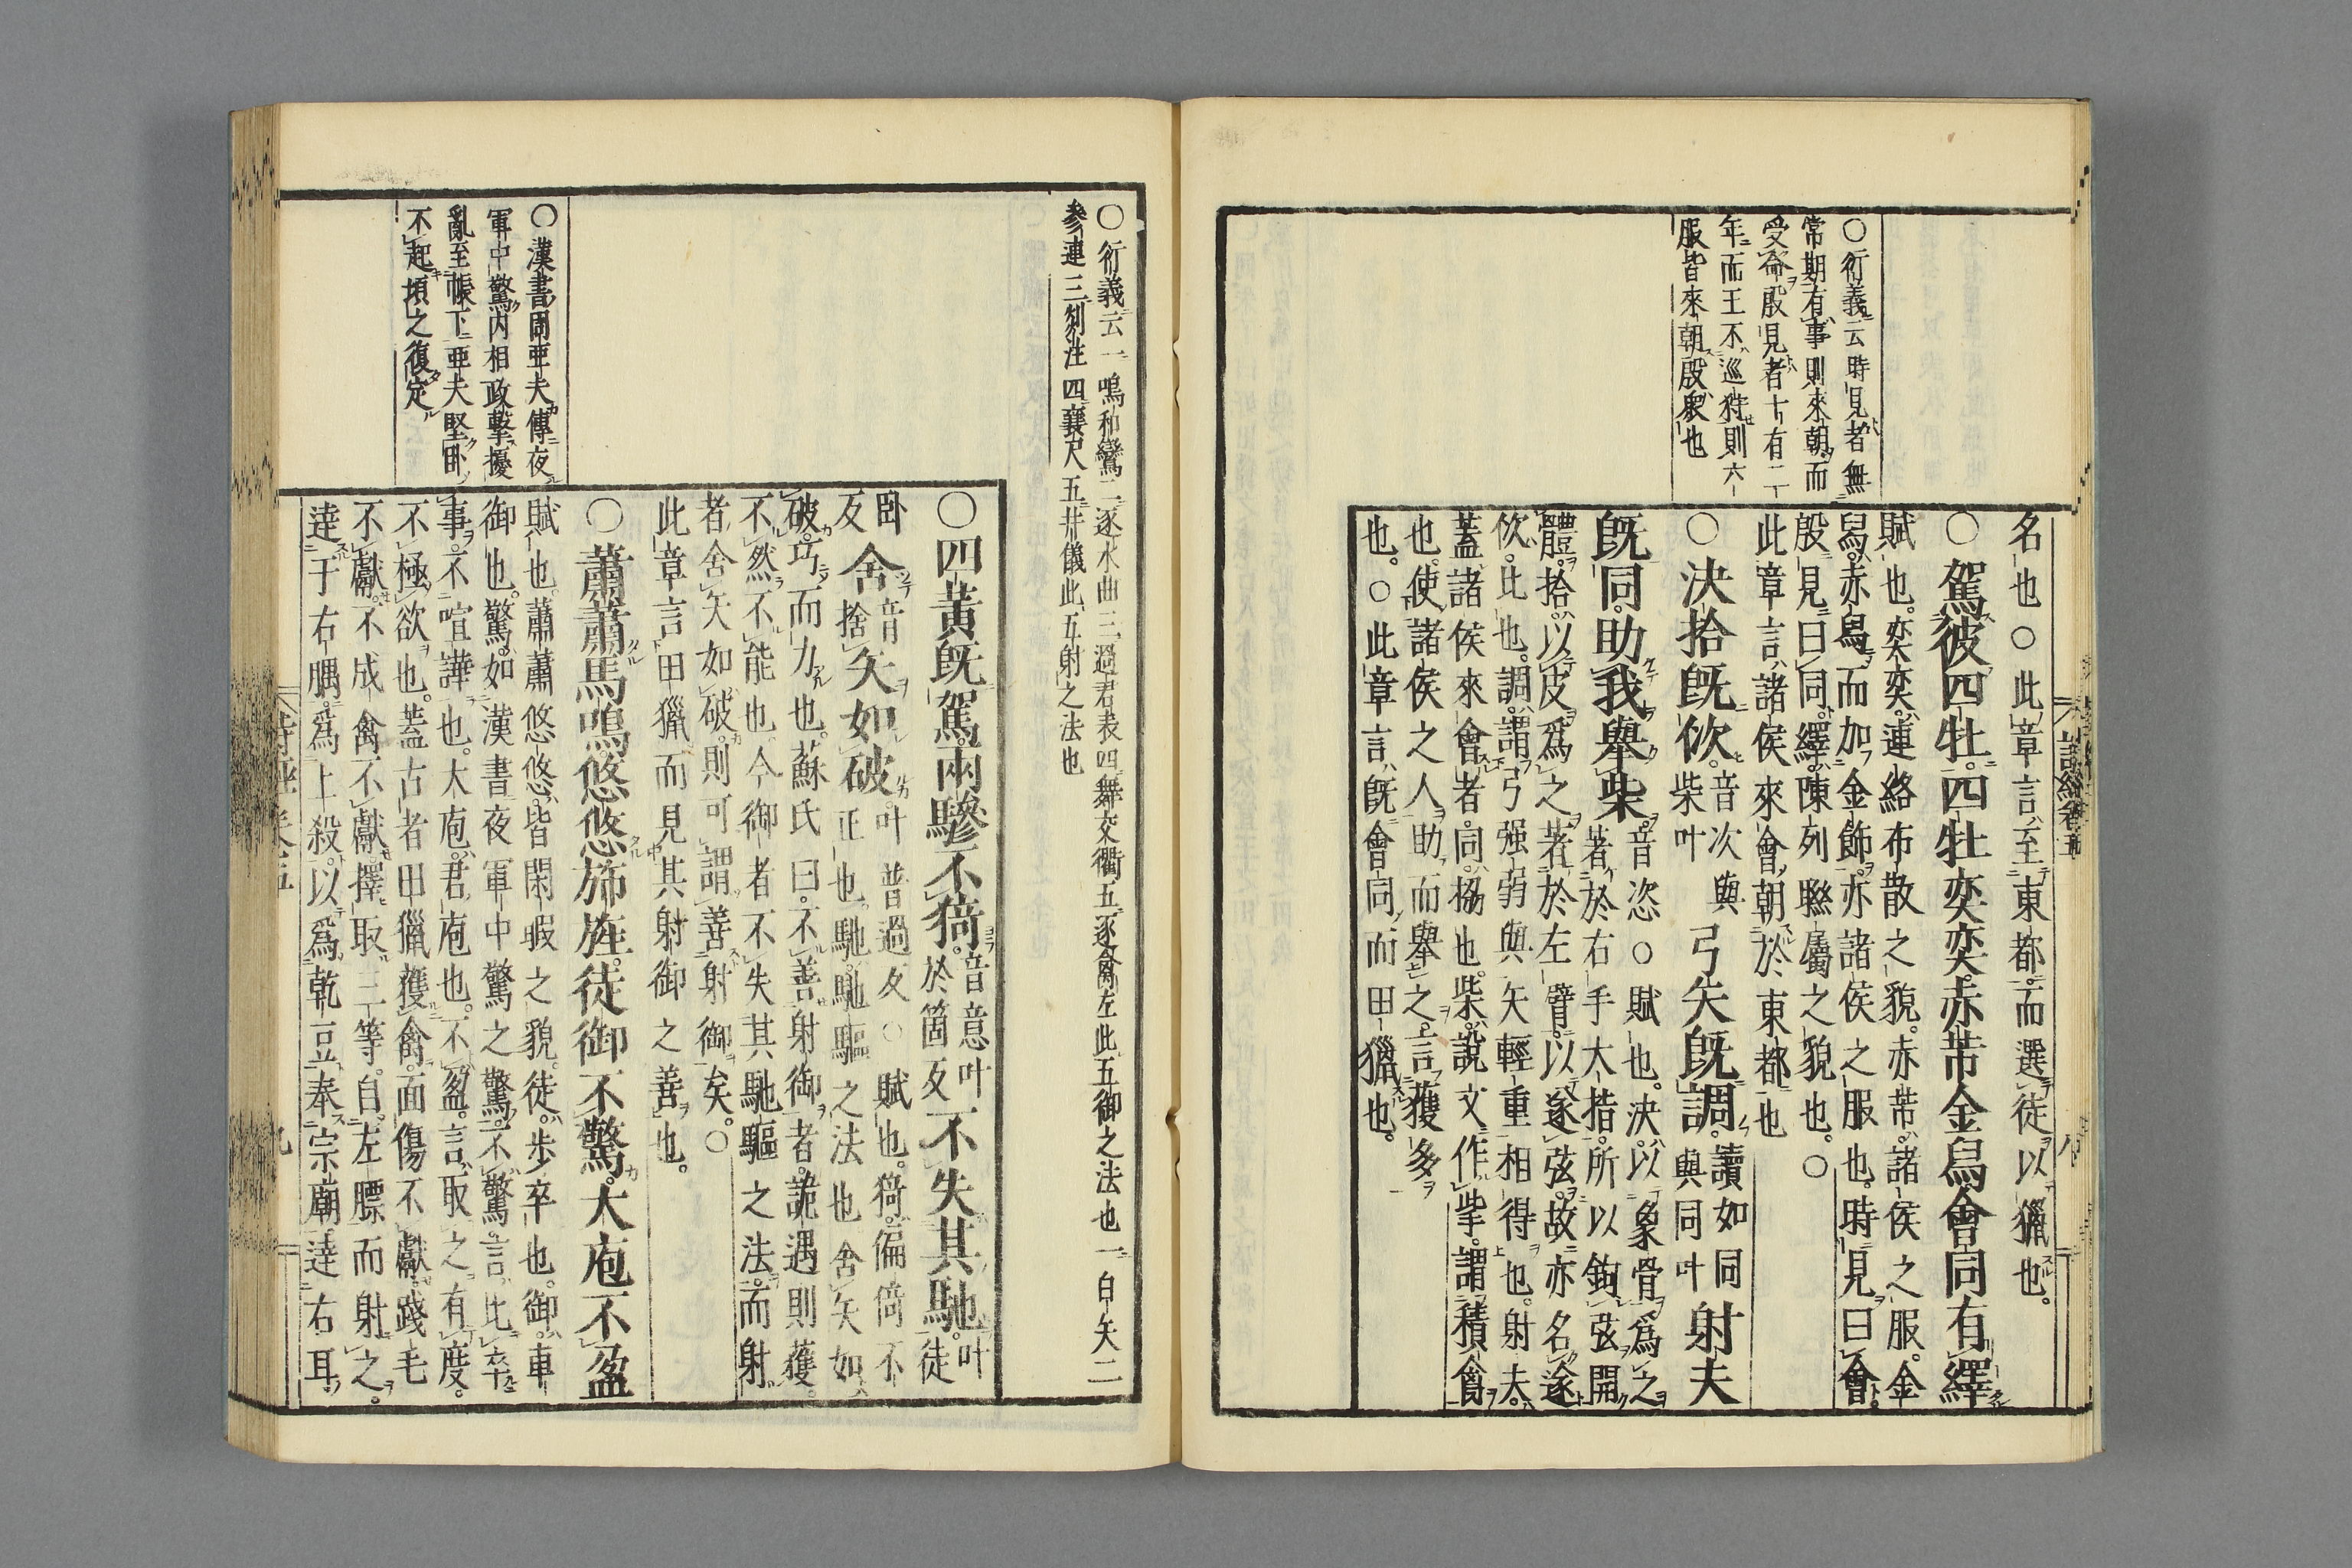 名也○此章言至東都而選徒以獵也。
○駕彼四牡四牡奕奕赤芾金舄會同有繹
賦也。奕奕連絡布散之貌。赤芾諸侯之服。金
舄。赤舄而加金飾。亦諸侯之服也。時見曰會。
殷見曰同。繹陳列聯屬之貌也。○
此章言諸侯來會朝於東都也
○決拾旣佽音次與柴叶弓矢旣調讀如同與同叶射夫
旣同助我舉柴音恣○賦也。決以象骨爲之
著於右手大指。所以鉤弦開
體。拾以皮爲之著於左臂。以遂弦。故亦名遂
佽。比也。調。謂弓强弱與矢輕重相得也。射夫。
蓋諸侯來會者。同。協也。柴。說文作㧘。謂積禽
也。使諸侯之人助而舉之。言獲多
也。○此章言旣會同而田獵也。
○衍義云時見者無
常期有事則來朝而
受命殷見者十有二
年而王不巡狩則六
服皆來朝殷衆也
詩經卷五
八
○衍義云一鳴和鸞二逐水曲三過君表四舞交衢五逐禽左此五御之法也一白矢二
參連三剡注四襄尺五井儀此五射之法也
○四黃旣駕兩驂不猗音意叶於箇反不失其馳叶徒
臥反舍音捨矢如破叶普過反○賦也。猗。偏倚不
正也。馳。馳驅之法也舍矢如
破。巧而力也。蘇氏曰。不善射御者。詭遇則獲。
不然不能也。今御者不失其馳驅之法。而射
者舍矢如破。則可謂善射御矣。○
此章言田獵而見其射御之善也。
○蕭蕭馬鳴悠悠旆旌徒御不驚大庖不盈
賦也蕭蕭悠悠。皆閑暇之貌。徒。步卒也。御。車
御也。驚。如漢書夜軍中驚之驚。不驚。言比卒
事。不喧譁也。大庖。君庖也。不盈。言取之有度。
不極欲也。蓋古者田獵獲禽。面傷不獻。踐毛
不獻。不成禽不獻。擇取三等。自左膘而射之。
達于右腢爲上殺。以爲乾豆奉宗廟。達右耳。
○漢書周亞夫傳夜
軍中驚內相攻擊擾
亂至帳下亞夫堅臥
不起頃之復定
詩經卷五
九